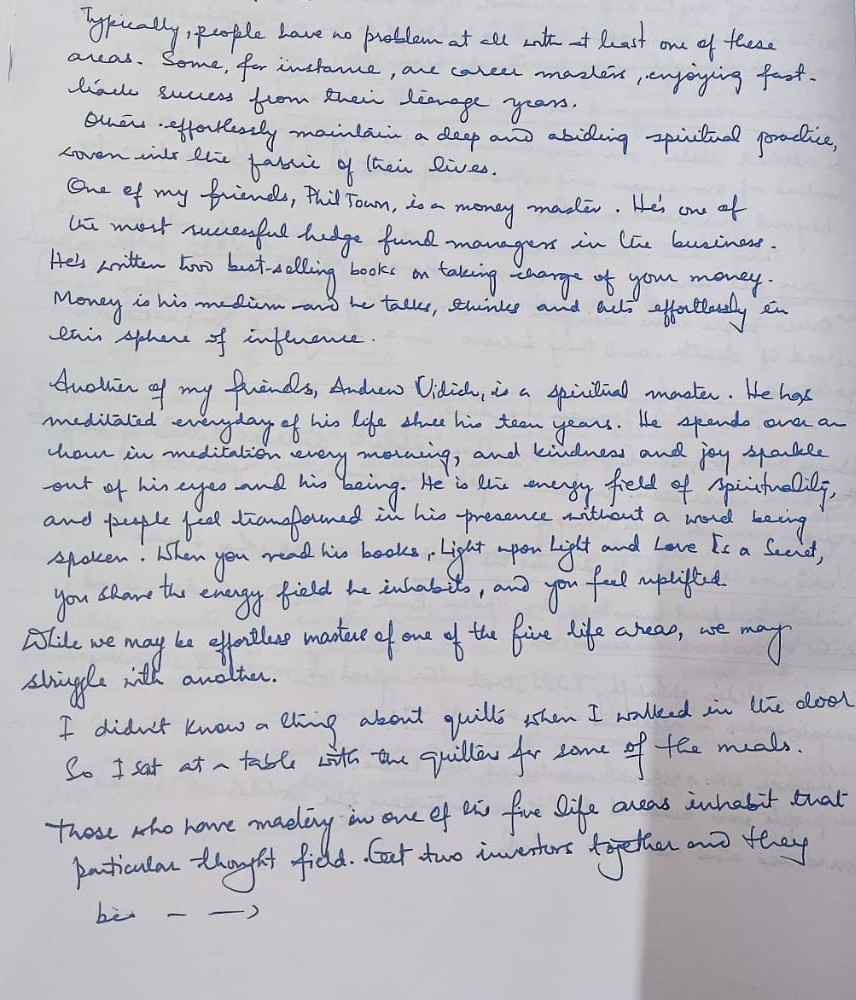 Typically, people have no problem at all with at least one of these
areas. Some, for instance, are career masters, enjoying fast-
track success from their teenage years.
Others effortlessly maintain a deep and abiding spiritual practice,
woven into the fabric of their lives.
One of my friends, Phil Town, is a money master. He's one of
the most successful hedge fund managers in the business.
He's written two best-selling books on taking charge of your money.
Money is his medium and he talks, thinks and acts effortlessly in
this sphere of influence.
Another of my friends, Andrew Vidich, is a spiritual master. He has
meditated everyday of his life since his teen years. He spends over an
hour in meditation every morning, and kindness and joy sparkle
out of his eyes and his being. He is the energy field of spirituality,
and people feel transformed in his presence without a word being
spoken. When you read his books, Light upon Light and Love Is a Secret,
you share the energy field he inhabits, and you feel uplifted.
While we may be effortless masters of one of the five life areas, we may
struggle with another.
I didn't know a thing about quilts when I walked in the door
So I sat at a table with the quilters for some of the meals.
Those who have mastery in one of the five life areas inhabit that
particular thought field. Get two investors together and they